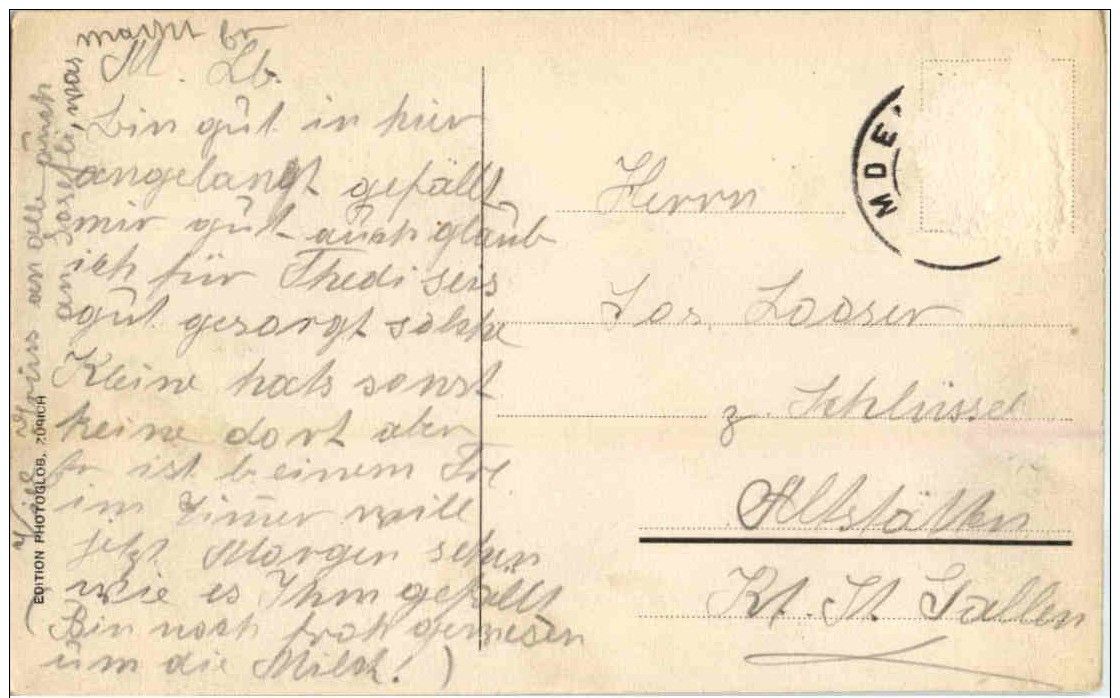 M. Lb.
Bin gût in hier
angelangt gefällt
mir gût auch glaûb
ich für Thedi seis
gût gesorgt solche
Kleine hats sonst
keine dort aber
Er ist b einem
im Zimer will
jetzt Morgen sehen
wie es Ihm gefällt
Bin noch froh gewesen
um die Milch!)
Viel Grüss an alle aûch
an Josefli, was
macht Er
EDITION PHOTOGLOB, ZÜRICH
MDE
Herrn
Jos. Looser
z. Schlüssel
Altstätten
Kt. St. Gallen